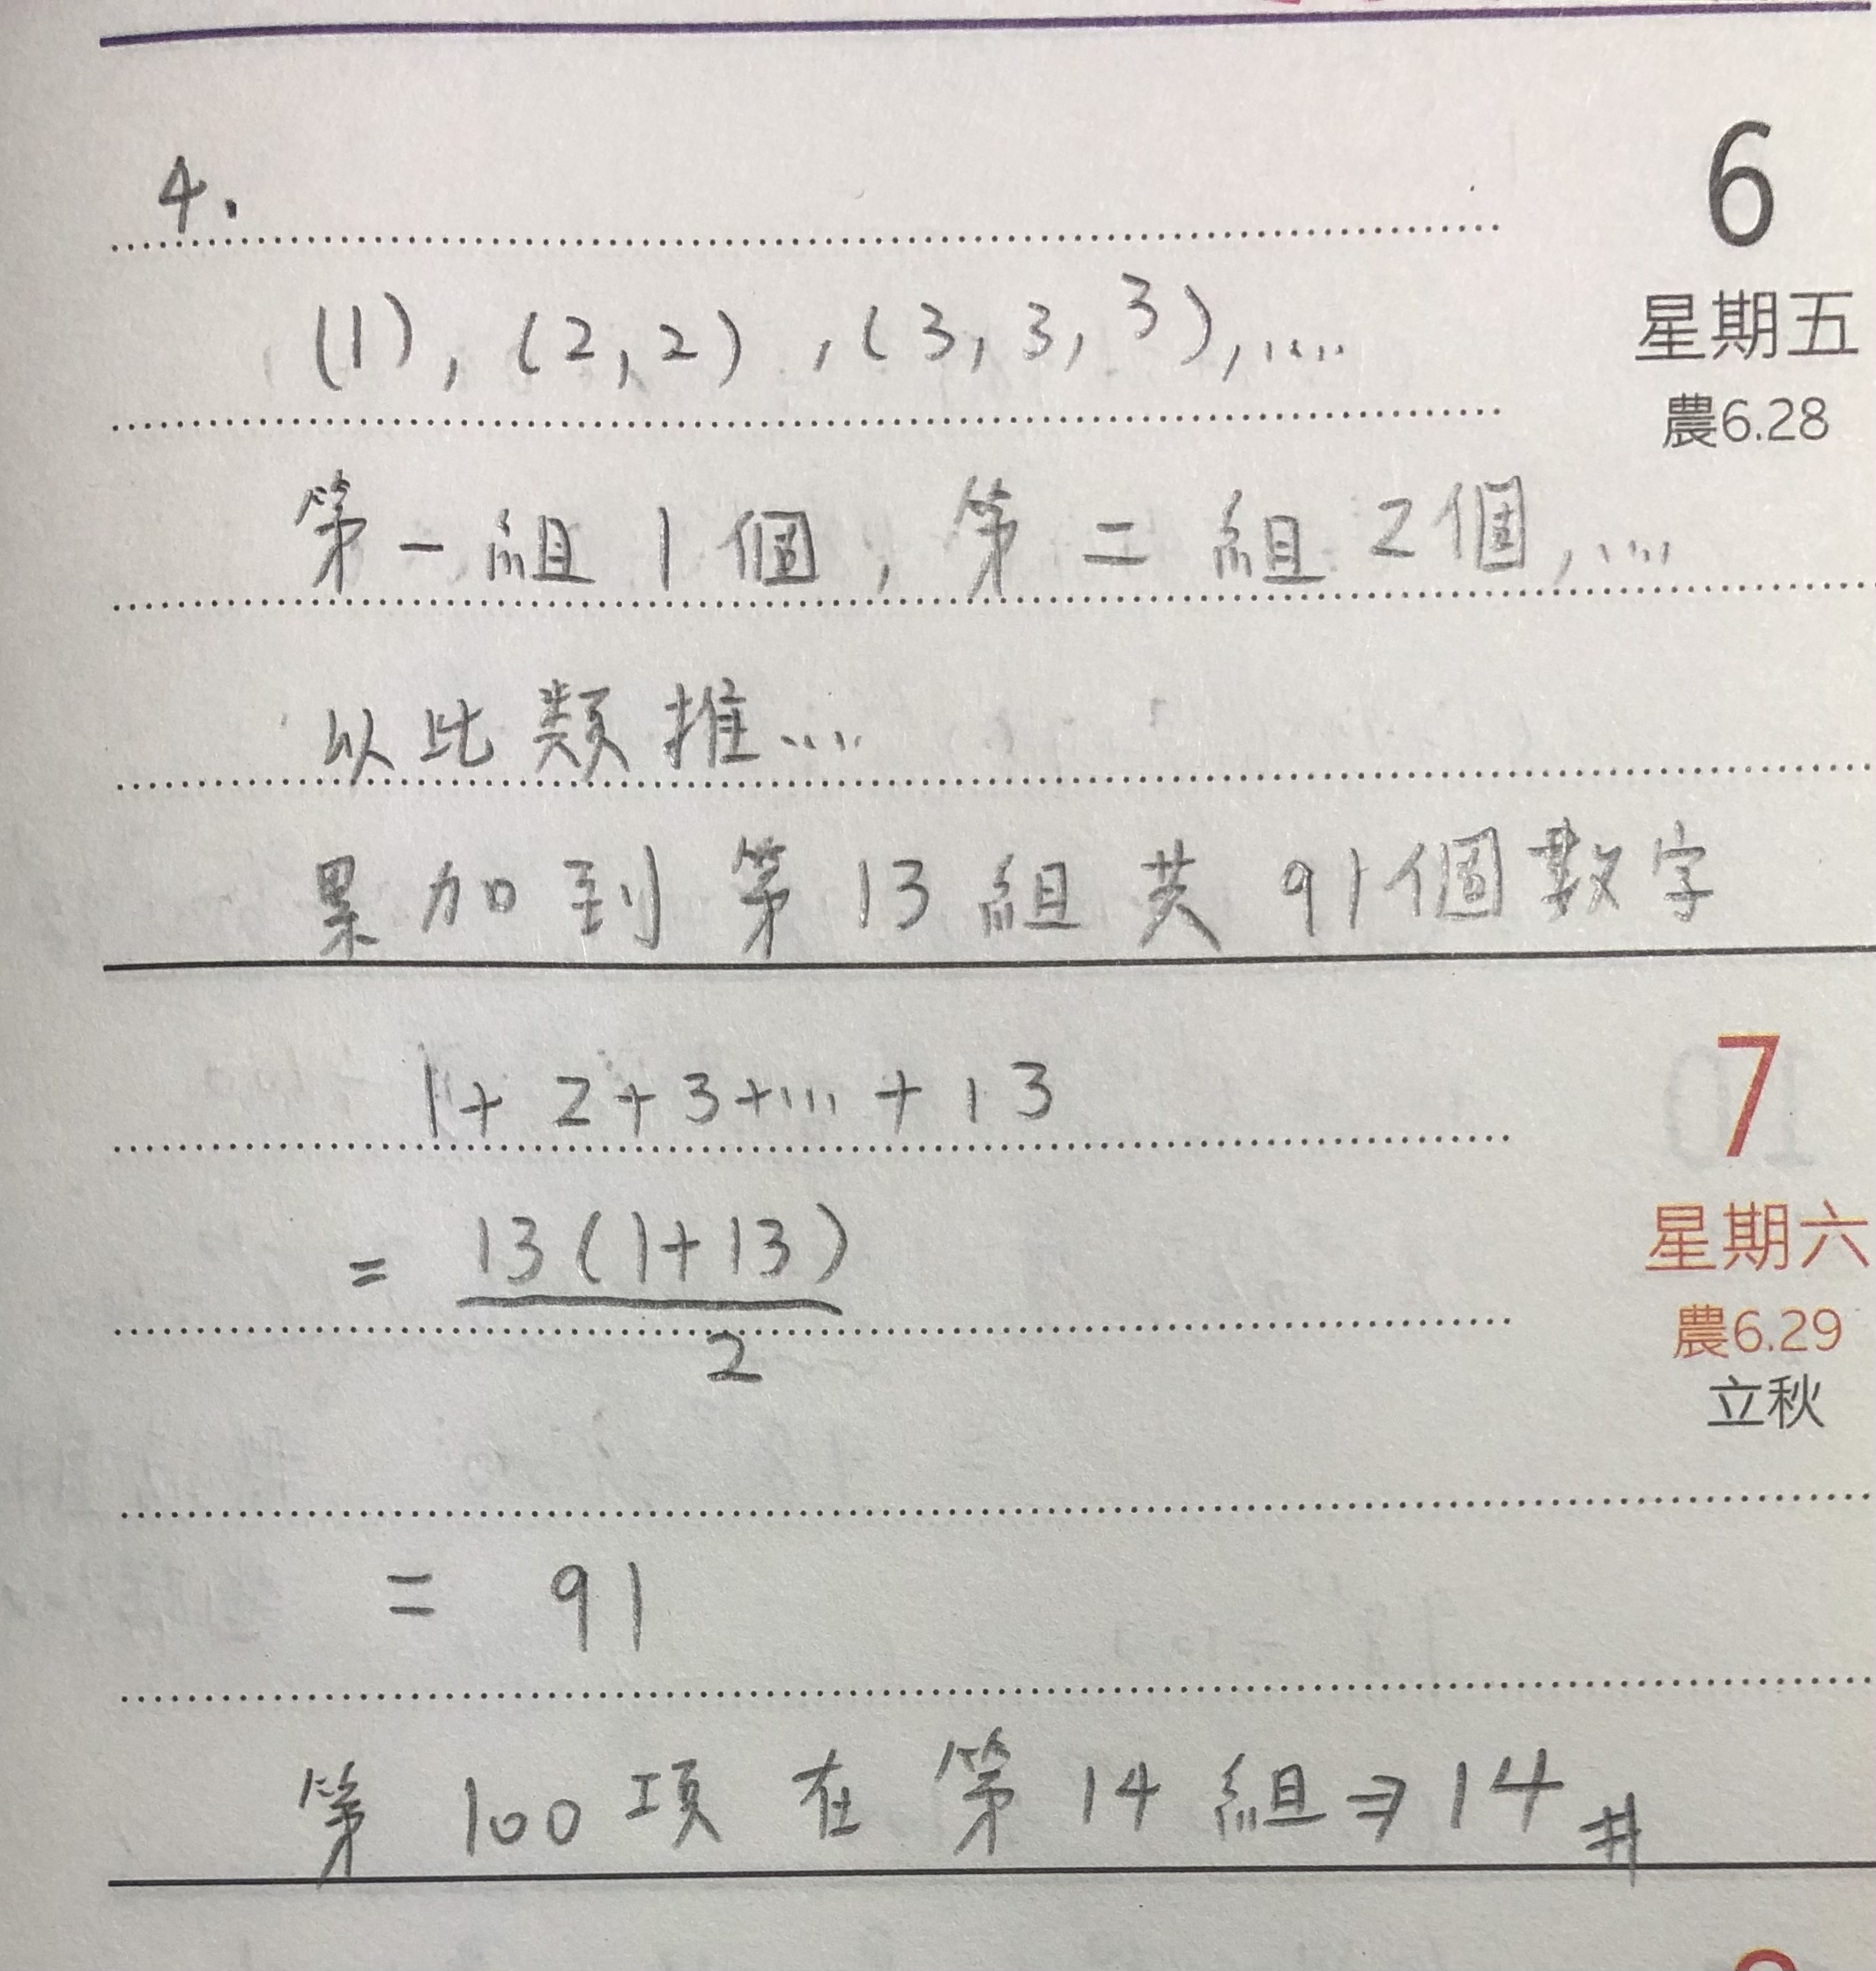 4.
6
(1), (2,2), (3,3,3), .....
星期五
農6.28
第一組 1個, 第二組 2個, ....
以此類推....
累加到第13組共91個數字
1+2+3+...+13
7
= 13(1+13)
星期六
2
農6.29
立秋
= 91
第100項在第14組⇒14#